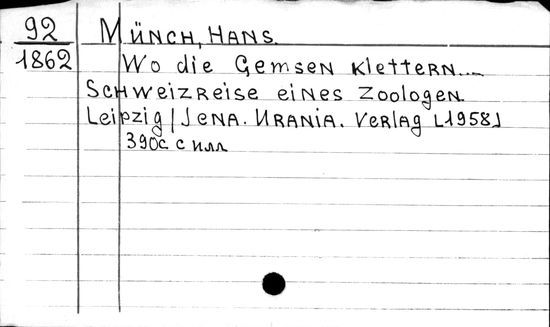 92
1862
MÜNCH, HANS.
Wo die Gemsen klettern...
Schweizreise eines Zoologen.
Leipzig/Jena. Urania. Verlag [1958]
390с. с илл